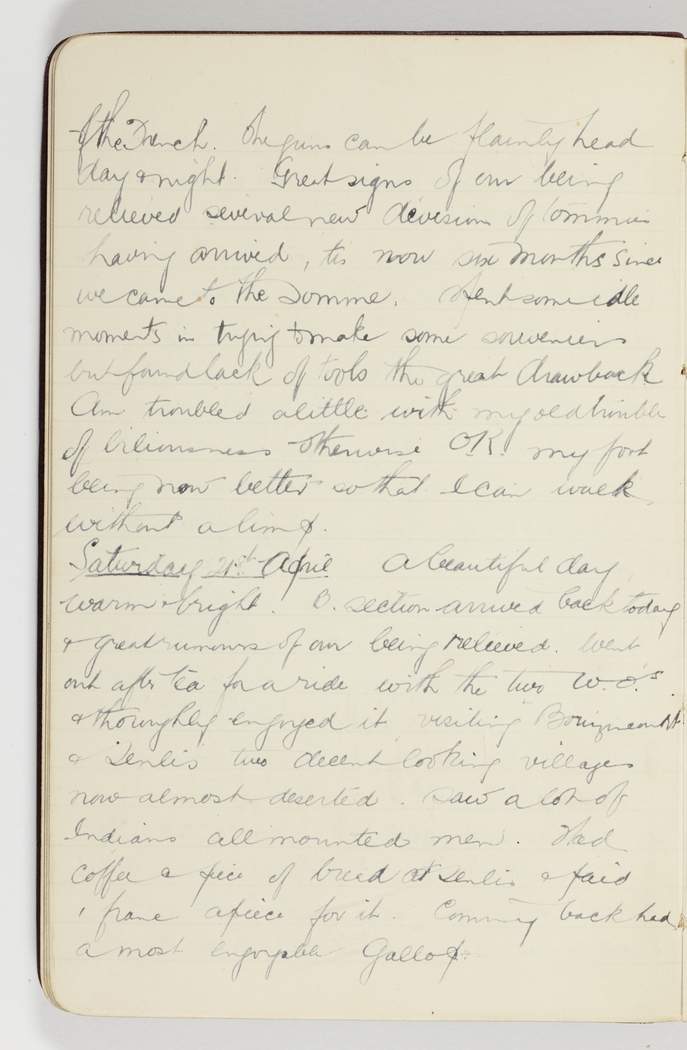 of the French. The guns can be plainly head
day & night. Great signs of our being
relieved several new divisions of Tommies
having arrived, tis now six months since
we came to the Somme. Spent some idle
moments in trying to make some souveniers
but found lack of tools the great drawback
Am troubled a little with my old trouble
of biliousness otherwise OK. my foot
being now better so that I can walk
without a limp.
Saturday 21st April A beautiful day
warm & bright. B. section arrived back today
& great rumours of our being relieved. Went
out after tea for a ride with the two W.O's
& thoroughly enjoyed it visiting
& Senlis two decent looking villages
now almost deserted. Saw a lot of
Indians all mounted men. Had
coffee & piece of bread at Senlis & paid
1 franc apiece for it. Coming back had
a most enjoyable Gallop.